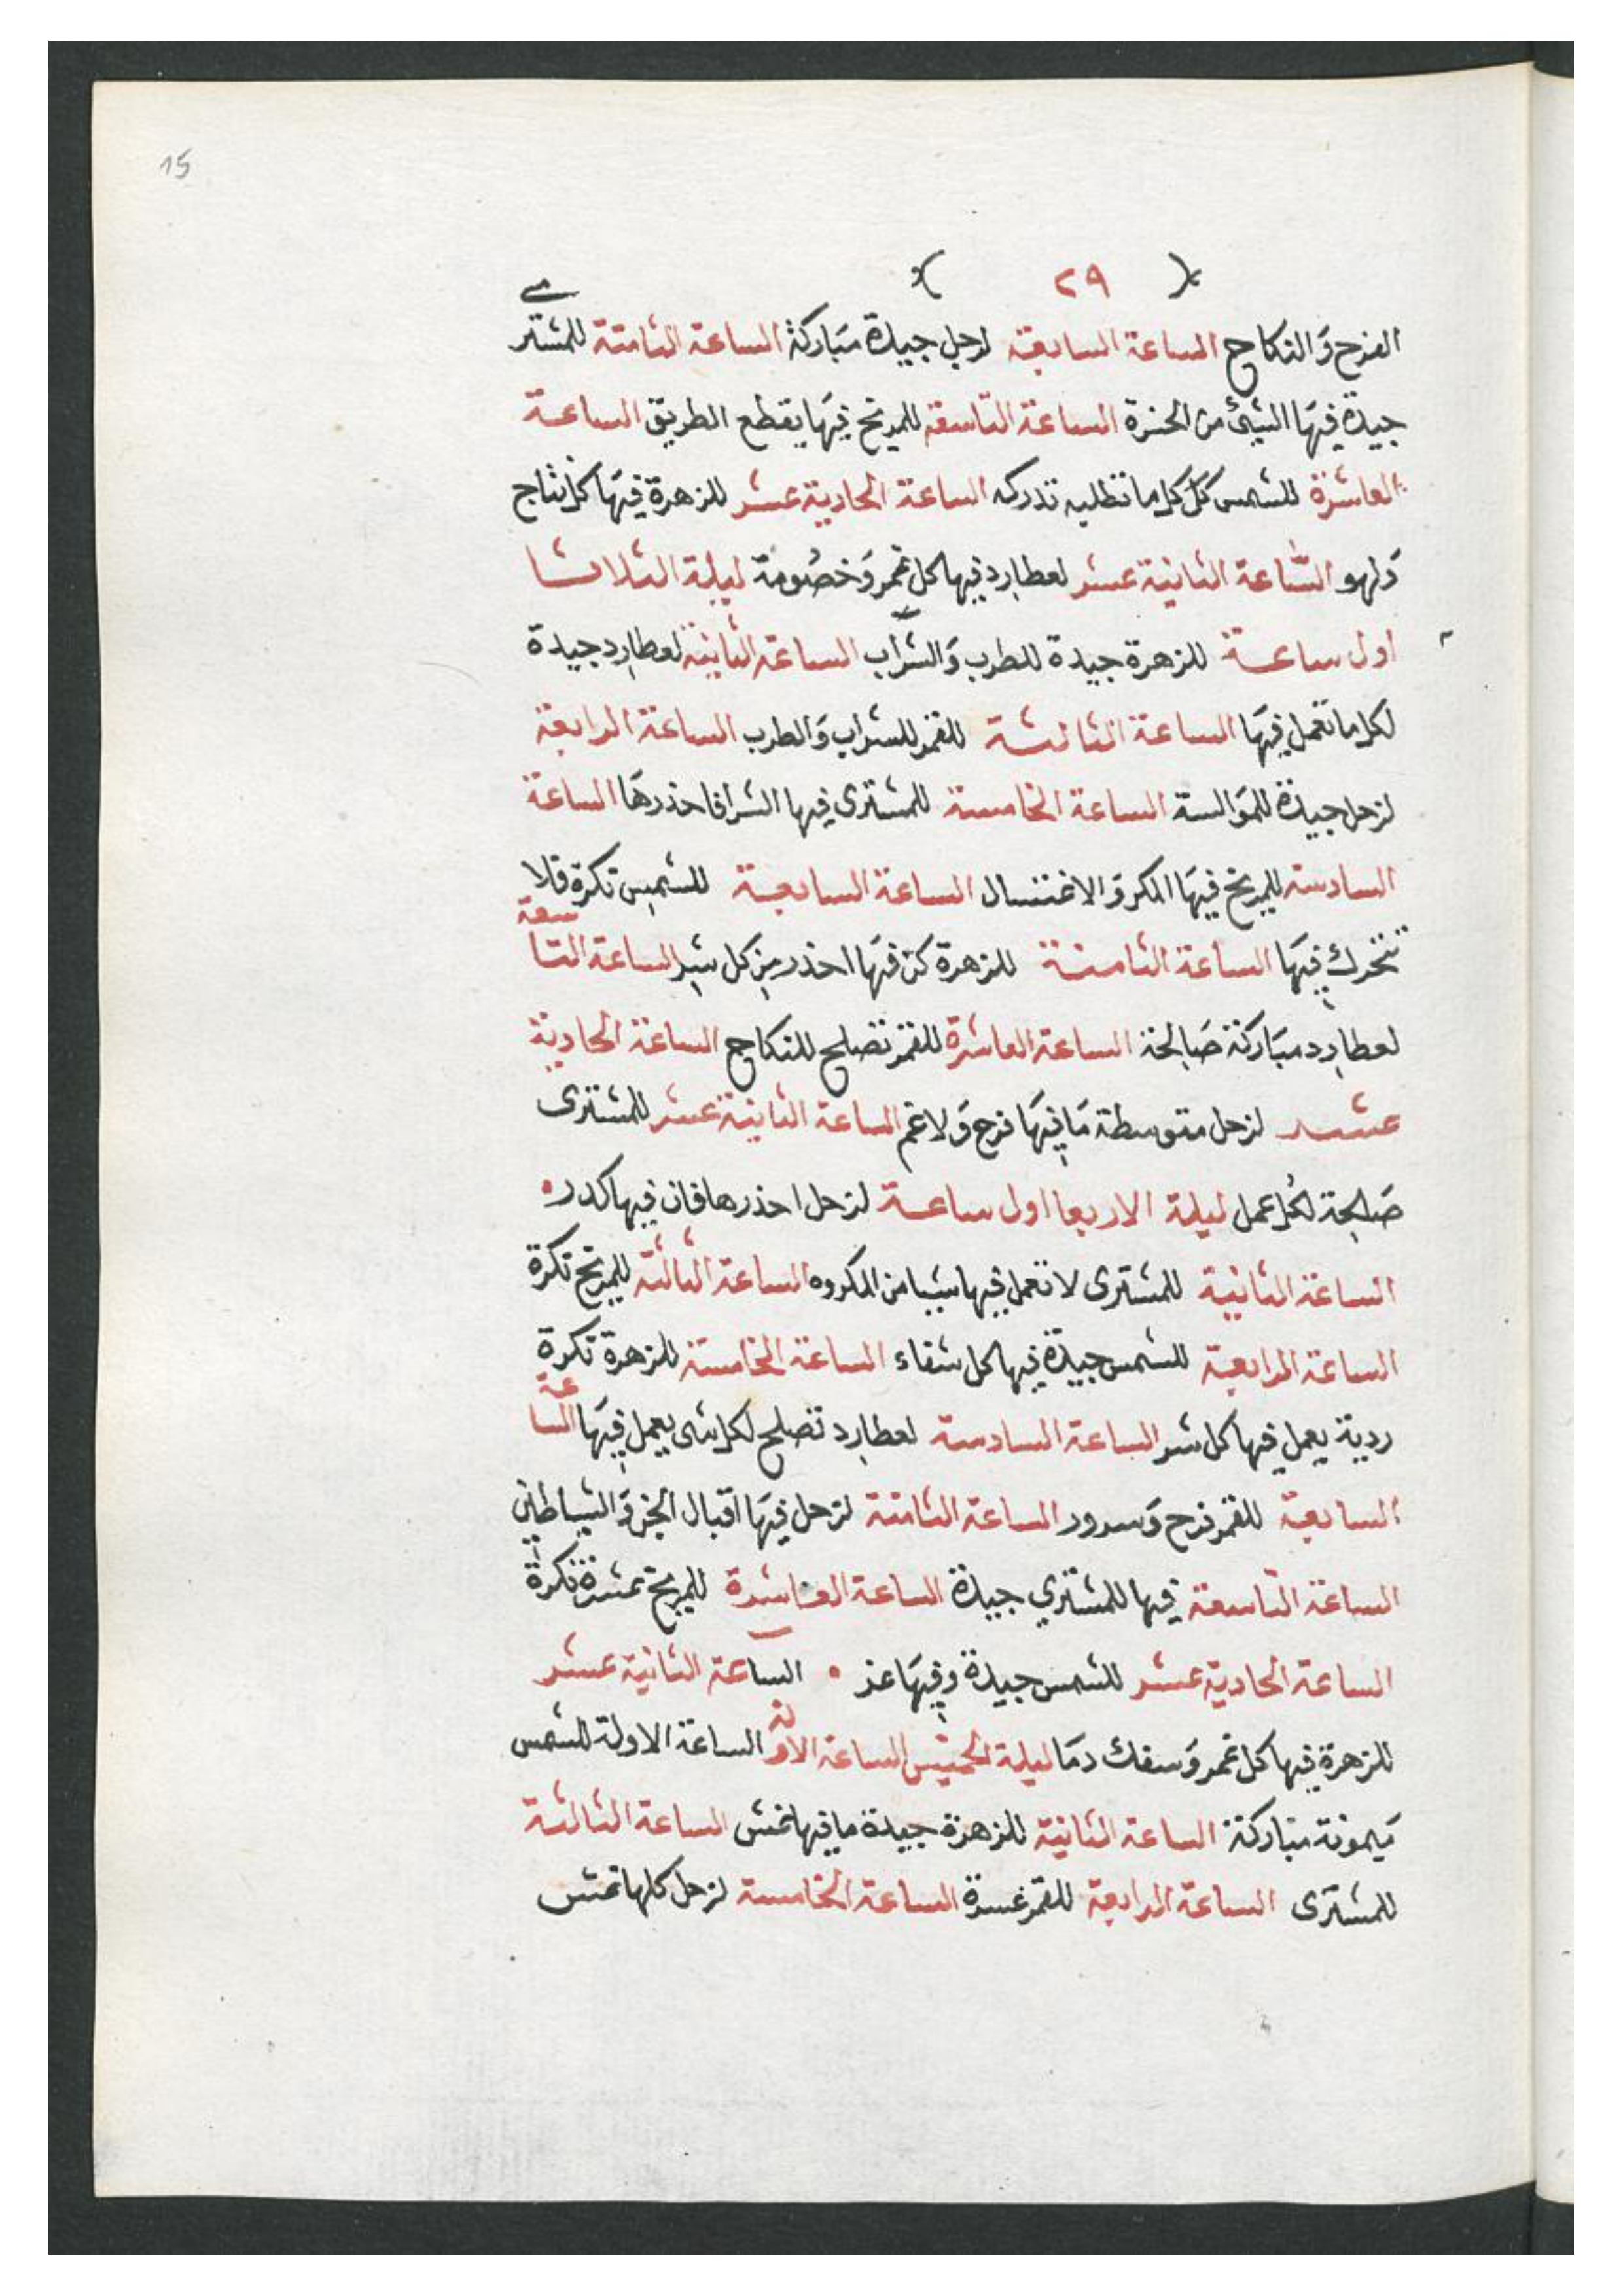 15
٢٩
الفرح والنكاح الساعة السابعة لزحل جيدة مباركة الساعة الثامنة للمشترى
جيدة فيها الشئ من الحنرة الساعة التاسعة للمريخ فيها يقطع الطريق الساعة
العاشرة للشمس كل كلما تطلبه تدركه الساعة الحادية عشر للزهرة فيها كل نتاج
ولهو الساعة الثانية عشر لعطارد فيها كل غمر وخصومة ليلة الثلاثا
اول ساعة للزهرة جيدة للطرب والشراب الساعة الثانية لعطارد جيدة
لكل ما تعمل فيها الساعة الثالثة للقمر للشراب والطرب الساعة الرابعة
لزحل جيدة للموالسة الساعة الخامسة للمشترى فيها الشر فاحذرها الساعة
السادسة للمريخ فيها المكر والاغتسال الساعة السابعة للشمس تكرة فلا
تتحرك فيها الساعة الثامنة للزهرة كن فيها احذر من كل شر الساعة التاسعة
لعطارد مباركة صالحة الساعة العاشرة للقمر تصلح للنكاح الساعة الحادية
عشر لزحل متوسطة ما فيها فرح ولا غم الساعة الثانية عشر للمشترى
صالحة لكل عمل ليلة الاربعا اول ساعة لزحل احذرها فان فيها كدر
الساعة الثانية للمشترى لا تعمل فيها شيا من المكروه الساعة الثالثة للمريخ تكرة
الساعة الرابعة للشمس جيدة فيها كل شفاء الساعة الخامسة للزهرة تكرة
ردية يعمل فيها كل شر الساعة السادسة لعطارد تصلح لكل شى يعمل فيها الساعة
السابعة للقمر فرح وسرور الساعة الثامنة لزحل فيها اقبال الجن والشياطين
الساعة التاسعة فيها للمشتري جيدة الساعة العاشرة للمريخ عشرة تكرة
الساعة الحادية عشر للشمس جيدة وفيها عز الساعة الثانية عشر
للزهرة فيها كل غمر وسفك دما ليلة الخميس الساعة الاولة الساعة الاولة للشمس
ميمونة مباركة الساعة الثانية للزهرة جيدة ما فيها غش الساعة الثالثة
للمشترى الساعة الرابعة للقمر عسرة الساعة الخامسة لزحل كلها غش